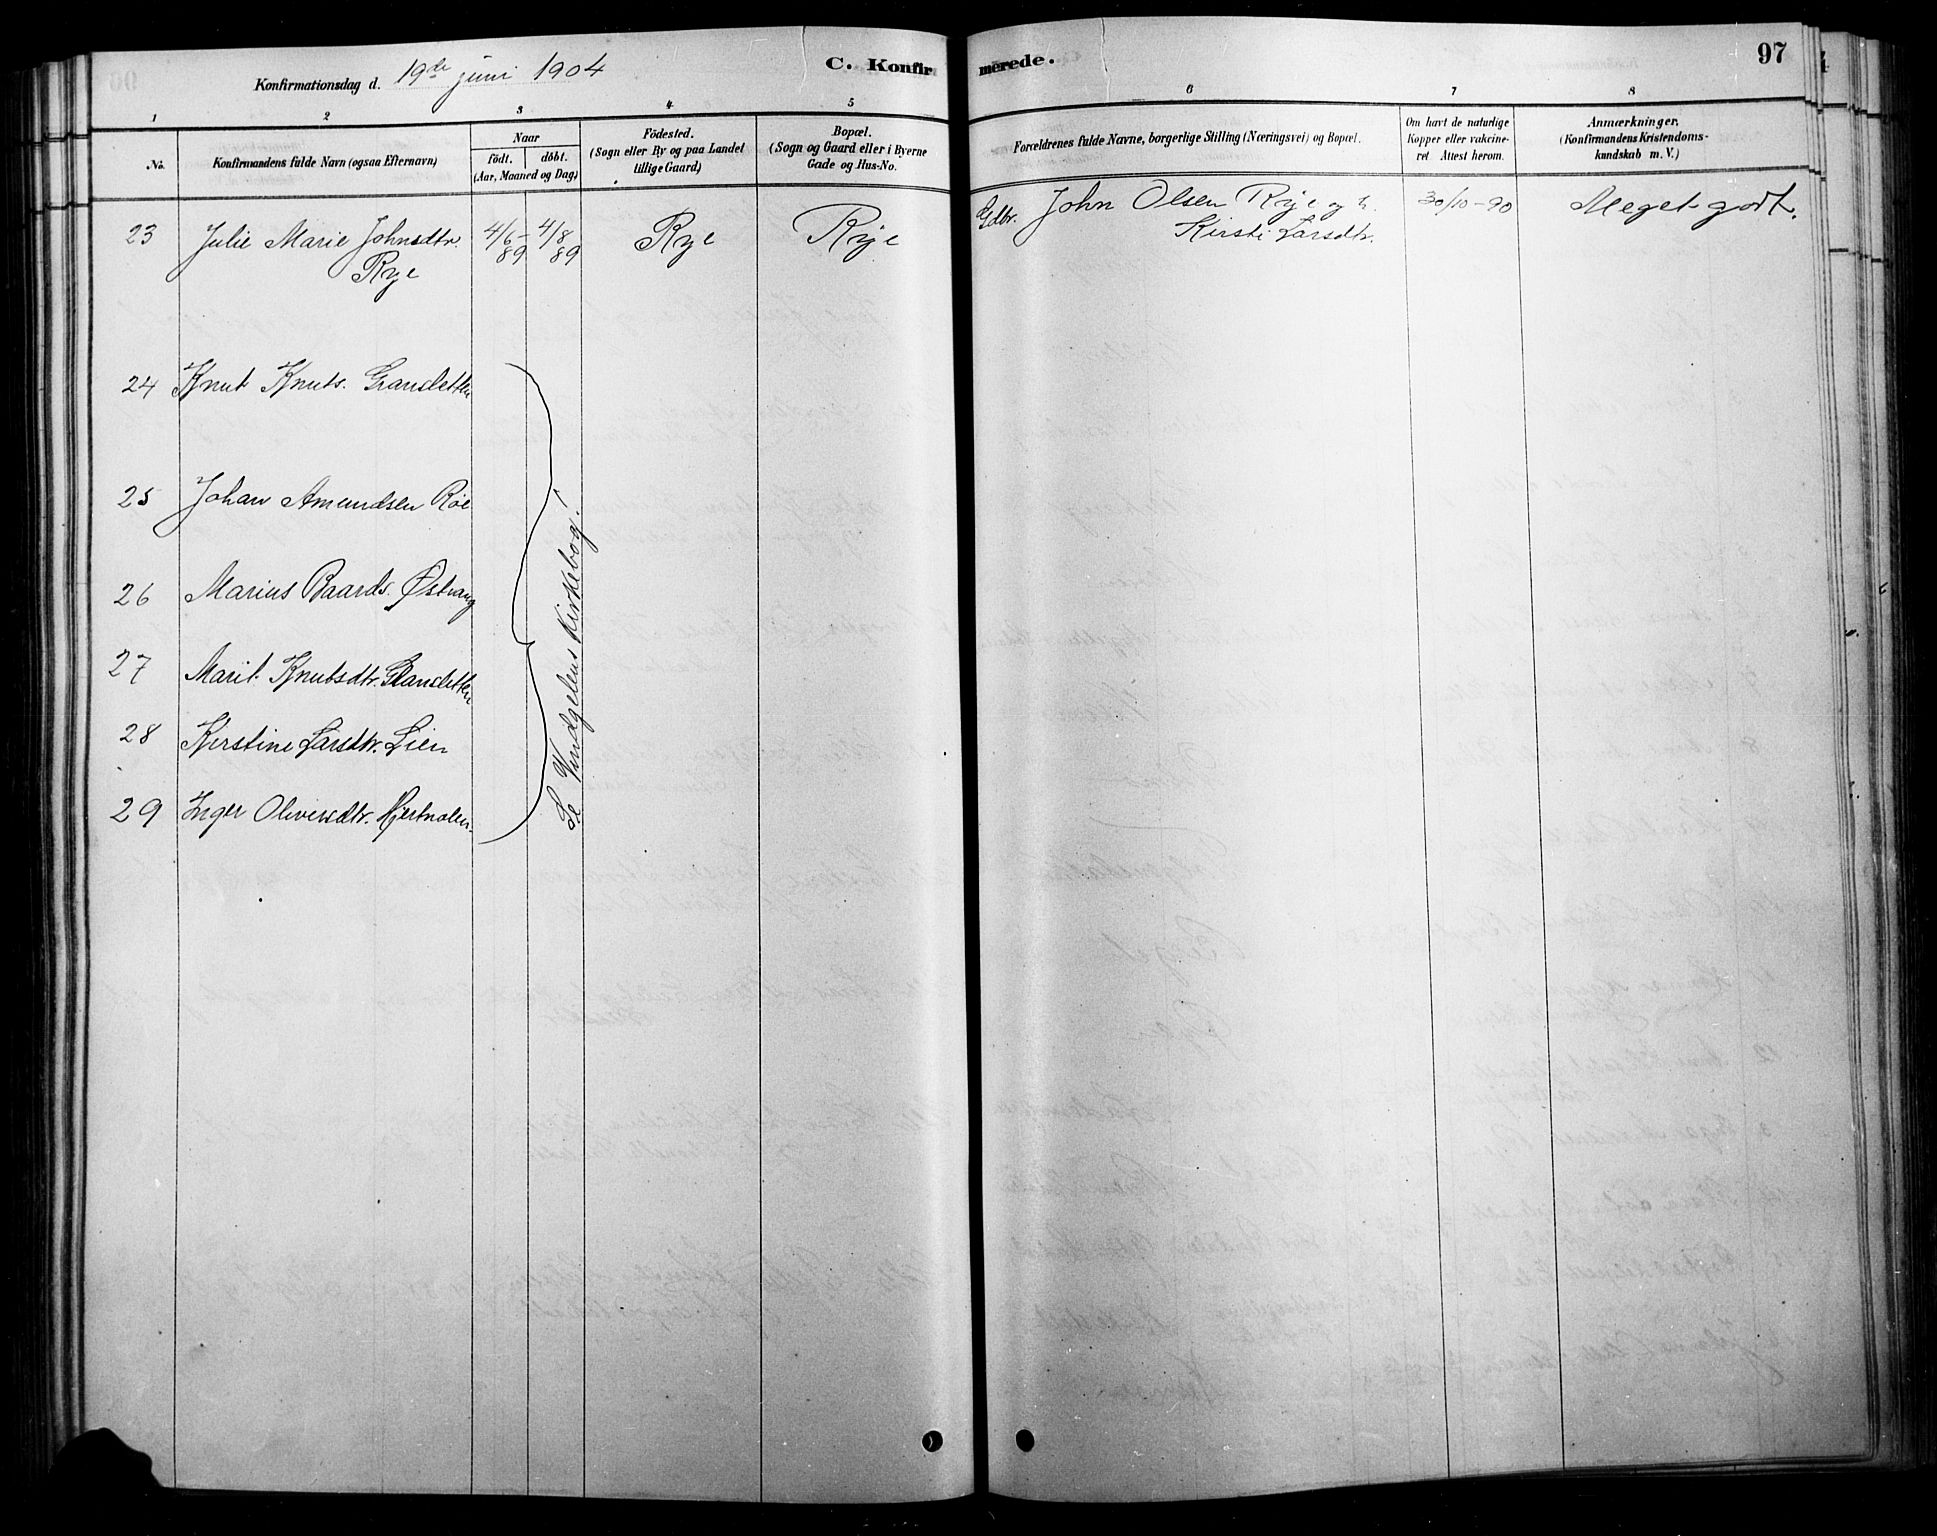 Konfirmationsdag d. 19de juni 1904
C. Konfir
merede.
97
1 2 3 4 5 6 7 8
No.
Konfirmandens fulde Navn (ogsaa Efternavn)
Naar
födt. döbt.
(Aar, Maaned og Dag)
Födested.
(Sogn eller By og paa Landet
tillige Gaard)
Bopæl.
(Sogn og Gaard eller i Byerne
Gade og Hus-No.
Forældrenes fulde Navne, borgerlige Stilling (Næringsvei) og Bopæl.
Om havt de naturlige
Kopper eller vakcine-
ret Attest herom.
Anmærkninger.
(Konfirmandens Kristendoms-
kundskab m. V.)
23 Julie Marie Johnsdtr. 4/6-89 4/8 89 Rye Rye Gdbr. John Olsen Rye og h. 30/10-90 Meget godt.
Rye Kirsti Larsdtr.
24 Knut Knuts. Gransletten
25 Johan Amundsen Röe
26 Marius Baards. Østvang
27 Marit Knutsdtr. Gransletten
28 Kerstine Larsdtr. Lien
29 Inger Oliversdtr. Hjertnolen
Se Vindgelens Kirkebog!